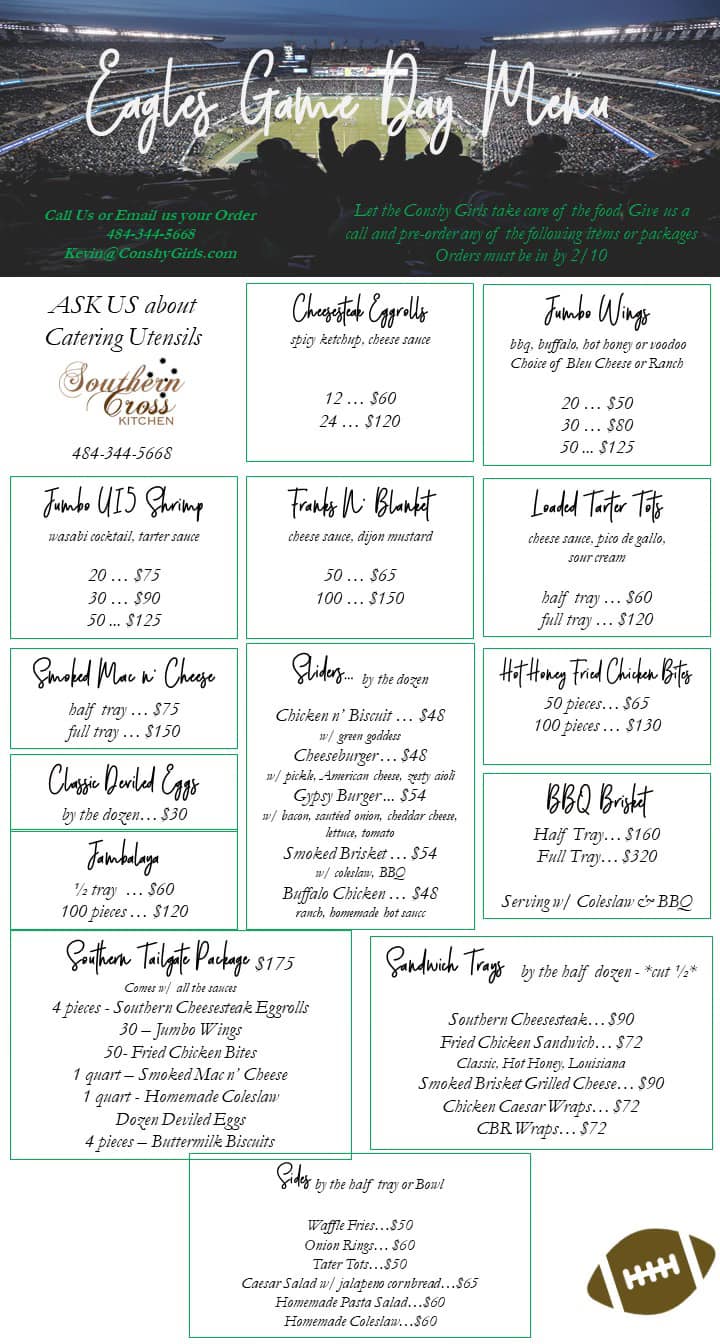 Eagles Game Day Menu
Call Us or Email us your Order
484-344-5668
Kevin@ConshyGirls.com
Let the Conshy Girls take care of the food, Give us a
call and pre-order any of the following items or packages
Orders must be in by 2/10
ASK US about
Catering Utensils
Southern
Cross
KITCHEN
484-344-5668
Cheesesteak Eggrolls
spicy ketchup, cheese sauce
12 … $60
24 … $120
Jumbo Wings
bbq, buffalo, hot honey or voodoo
Choice of Bleu Cheese or Ranch
20 … $50
30 … $80
50 ... $125
Jumbo U15 Shrimp
wasabi cocktail, tarter sauce
20 … $75
30 … $90
50 ... $125
Franks N' Blanket
cheese sauce, dijon mustard
50 … $65
100 … $150
Loaded Tarter Tots
cheese sauce, pico de gallo,
sour cream
half tray … $60
full tray … $120
Smoked Mac n' Cheese
half tray … $75
full tray … $150
Classic Deviled Eggs
by the dozen… $30
Jambalaya
½ tray … $60
100 pieces … $120
Sliders... by the dozen
Chicken n' Biscuit … $48
w/ green goddess
Cheeseburger… $48
w/ pickle, American cheese, zesty aioli
Gypsy Burger... $54
w/ bacon, sautéed onion, cheddar cheese,
lettuce, tomato
Smoked Brisket … $54
w/ coleslaw, BBQ
Buffalo Chicken … $48
ranch, homemade hot saucc
Hot Honey Fried Chicken Bites
50 pieces… $65
100 pieces… $130
BBQ Brisket
Half Tray… $160
Full Tray… $320
Serving w/ Coleslaw & BBQ
Southern Tailgate Package $175
Comes w/ all the sauces
4 pieces - Southern Cheesesteak Eggrolls
30 – Jumbo Wings
50- Fried Chicken Bites
1 quart – Smoked Mac n' Cheese
1 quart - Homemade Coleslaw
Dozen Deviled Eggs
4 pieces – Buttermilk Biscuits
Sandwich Trays by the half dozen - *cut ½*
Southern Cheesesteak… $90
Fried Chicken Sandwich… $72
Classic, Hot Honey, Louisiana
Smoked Brisket Grilled Cheese… $90
Chicken Caesar Wraps… $72
CBR Wraps… $72
Sides by the half tray or Bowl
Waffle Fries…$50
Onion Rings… $60
Tater Tots…$50
Caesar Salad w/ jalapeno cornbread…$65
Homemade Pasta Salad…$60
Homemade Coleslaw…$60